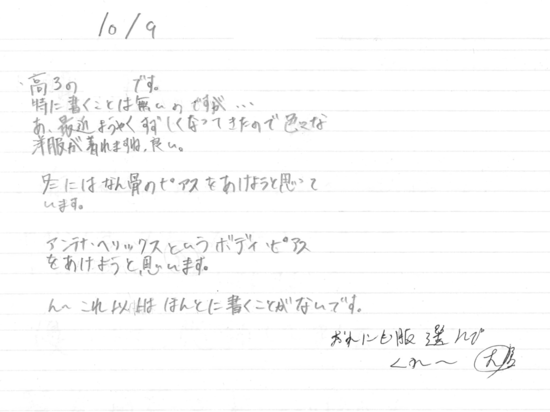 10/9
・高3の です。
特に書くことは無いのですが…
あ、最近ようやくすずしくなってきたので色々な
洋服が着れますね。良い。
冬にはなん骨のピアスをあけようと思って
います。
アンテナ・ヘリックスというボディ・ピアス
をあけようと思います。
ん〜これ以上はほんとに書くことがないです。
おれにも服選んで
くれ〜